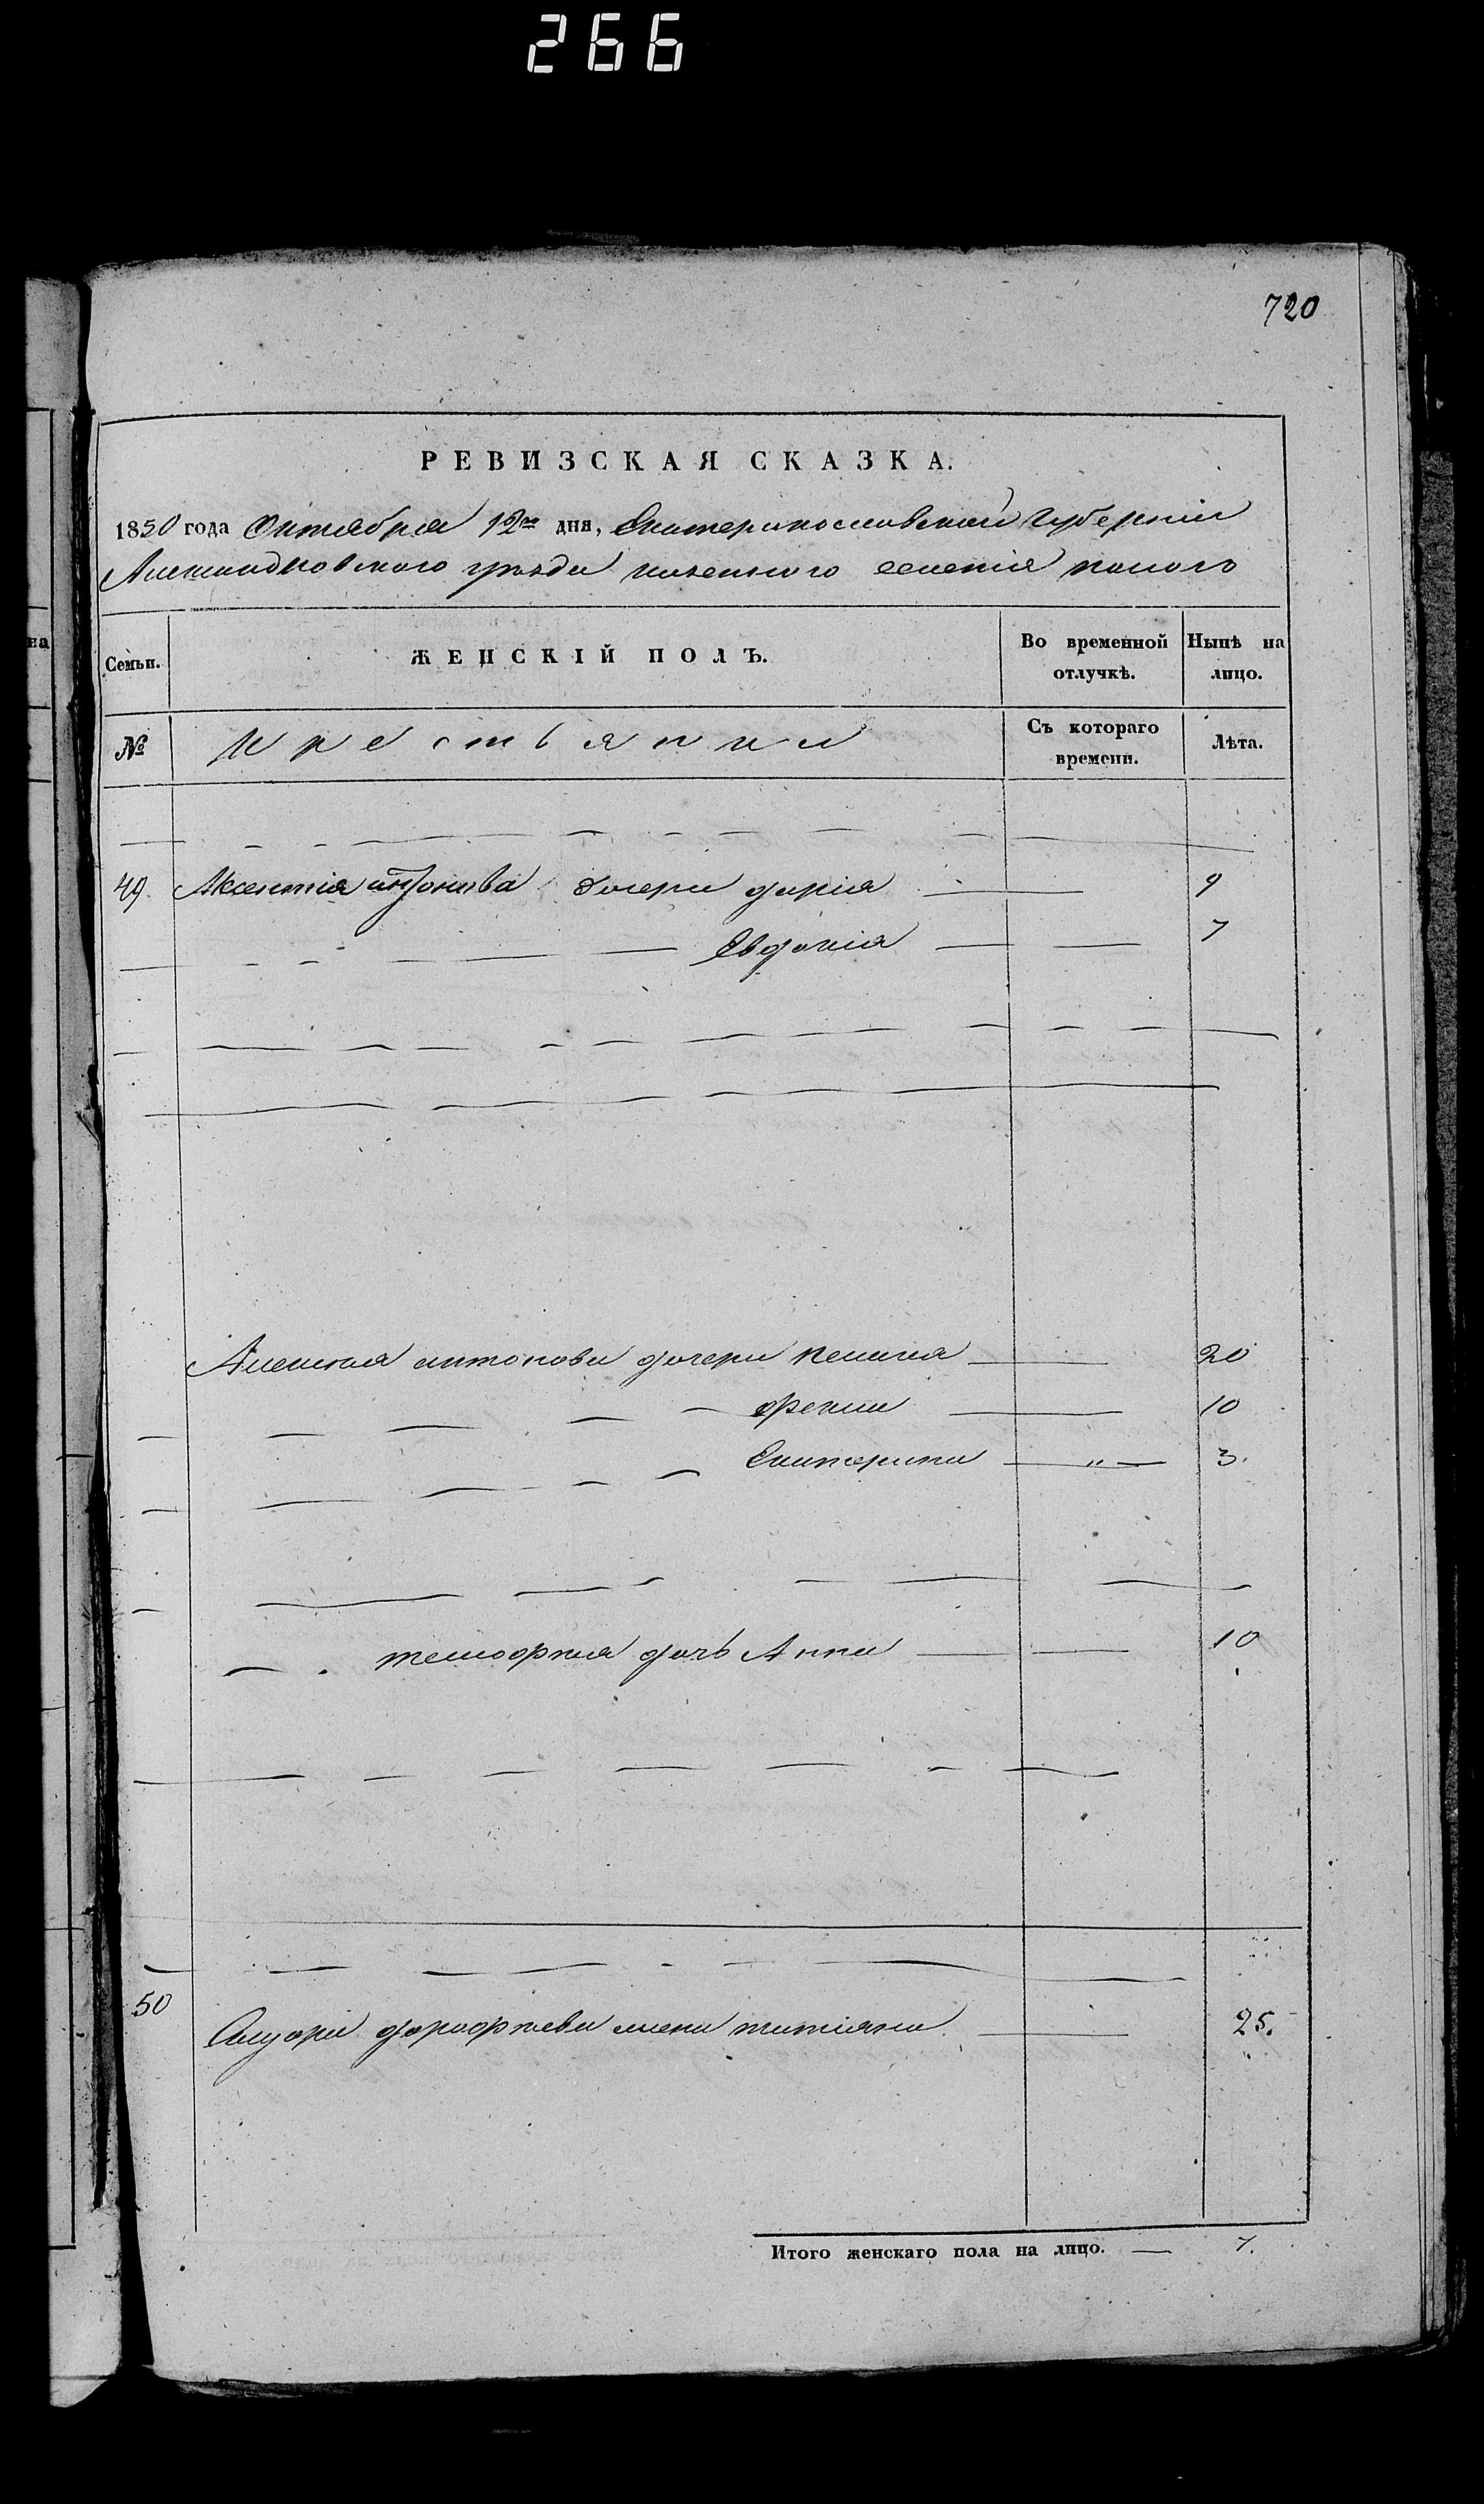 266
720
РЕВИЗСКАЯ СКАЗКА.
1850 года Октября 12го дня, Екатеринославской Губерніи
Александровского уезда казенного селенія
Семьи.
ЖЕНСКІЙ ПОЛЪ.
Во временной отлучкѣ.
Нынѣ на лицо.
№
Крестьянки
Съ котораго времени.
Лѣта.
49. Аксентія антонова дочери дарія 9
Евдокія 7
Алексея антонова дочери 20
10
Екатерина " 3.
тимофея дочь Анна 10
50
дорофеева жена татіяна 25.
Итого женскаго пола на лицо. 7.